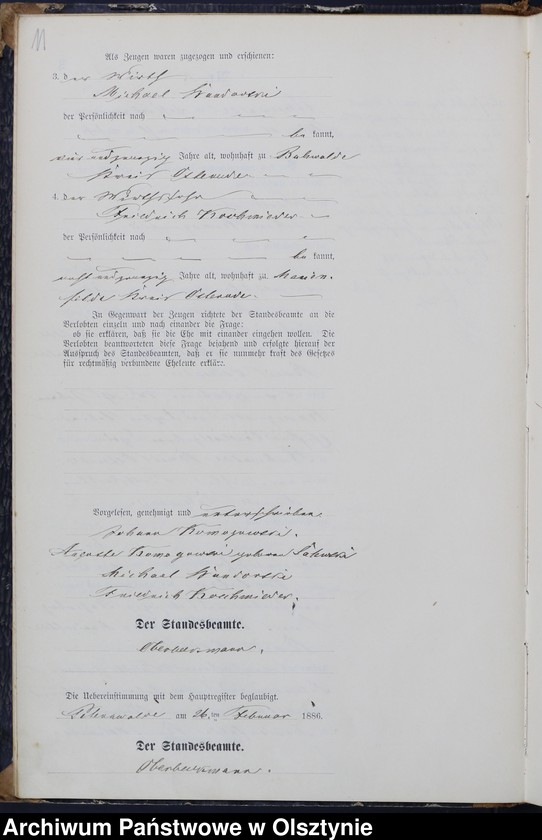 11
Als Zeugen waren zugezogen und erschienen:
3. der Wirth
Michael
der Persönlichkeit nach
be kannt,
Jahre alt, wohnhaft zu
Kreis Osterode
4. der Wirthssohn
Friedrich Koschmieder
der Persönlichkeit nach
be kannt,
acht und zwanzig Jahre alt, wohnhaft zu Marien-
felde Kreis Osterode.
In Gegenwart der Zeugen richtete der Standesbeamte an die
Verlobten einzeln und nach einander die Frage:
ob sie erklären, daß sie die Ehe mit einander eingehen wollen. Die
Verlobten beantworteten diese Frage bejahend und erfolgte hierauf der
Ausspruch des Standesbeamten, daß er sie nunmehr kraft des Gesetzes
für rechtmäßig verbundene Eheleute erkläre.
Vorgelesen, genehmigt und unterschrieben
Johann
Auguste geborene
Michael
Friedrich Koschmieder.
Der Standesbeamte.
Die Uebereinstimmung mit dem Hauptregister beglaubigt.
am 26. ten Februar 1886.
Der Standesbeamte.
Archiwum Państwowe w Olsztynie